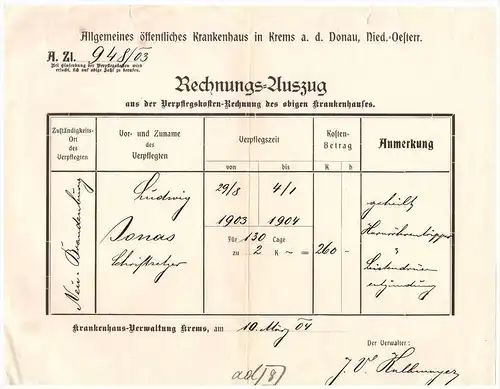 Allgemeines öffentliches Krankenhaus in Krems a. d. Donau, Nied.-Oesterr.
A. Zl. 948/03
Bei Einsendung der Verpflegskosten wird
ersucht, sich auf obige Zahl zu berufen.
Rechnungs-Auszug
aus der Verpflegskosten-Rechnung des obigen Krankenhauses.
Zuständigkeits-
Ort
des
Verpflegten
Vor- und Zuname
des
Verpflegten
Verpflegszeit
von bis
Kosten-
Betrag
K h
Anmerkung
Neu-Brandenburg
Ludwig
Jonas
Schriftsetzer
29/8 4/1
1903 1904
Für 130 Tage
zu 2 K ~ =
260 -
geheilt
Harnröhrentripper
"
Leistendrüsen
entzündung
Krankenhaus-Verwaltung Krems, am 10. März 04
Der Verwalter:
ad/8)